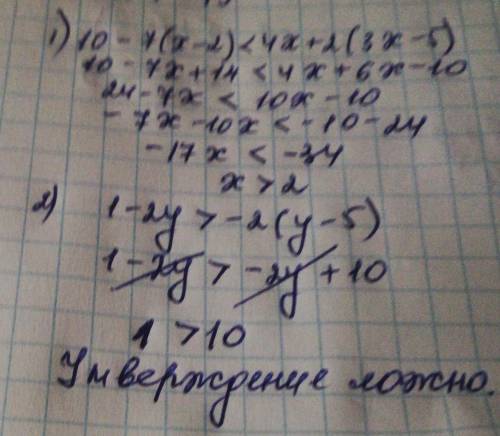 1) 10 - 7(x-2) < 4x + 2(3x-5)
10 - 7x + 14 < 4x + 6x - 10
24 - 7x < 10x - 10
- 7x - 10x < -10 - 24
-17x < -34
x > 2
2) 1 - 2y > -2(y-5)
1 - 2y > -2y + 10
1 > 10
Утверждение ложно.